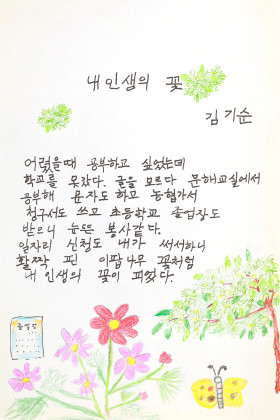 내 인생의 꽃
김 기순
어렸을때 공부하고 싶었는데
학교를 못갔다. 글을 모르다 문해교실에서
공부해 문자도 하고 농협가서
청구서도 쓰고 초등학교 졸업장도
받으니 눈뜬 봉사같다.
일자리 신청도 내가 써서하니
활짝 핀 이팝나무 꽃처럼
내 인생의 꽃이 피었다.
졸업장